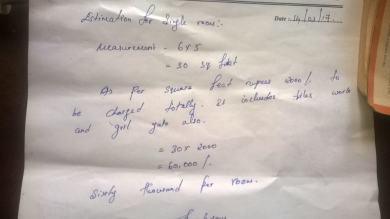 Date: 14/01/17
Estimation for Single room:-
Measurement - 6x5
= 30 sq feet
As per square feet rupees 2000/. to
be charged totally. It includes tiles work
and gril gate also.
= 30x 2000
= 60,000/.
Sixty thousand per room.